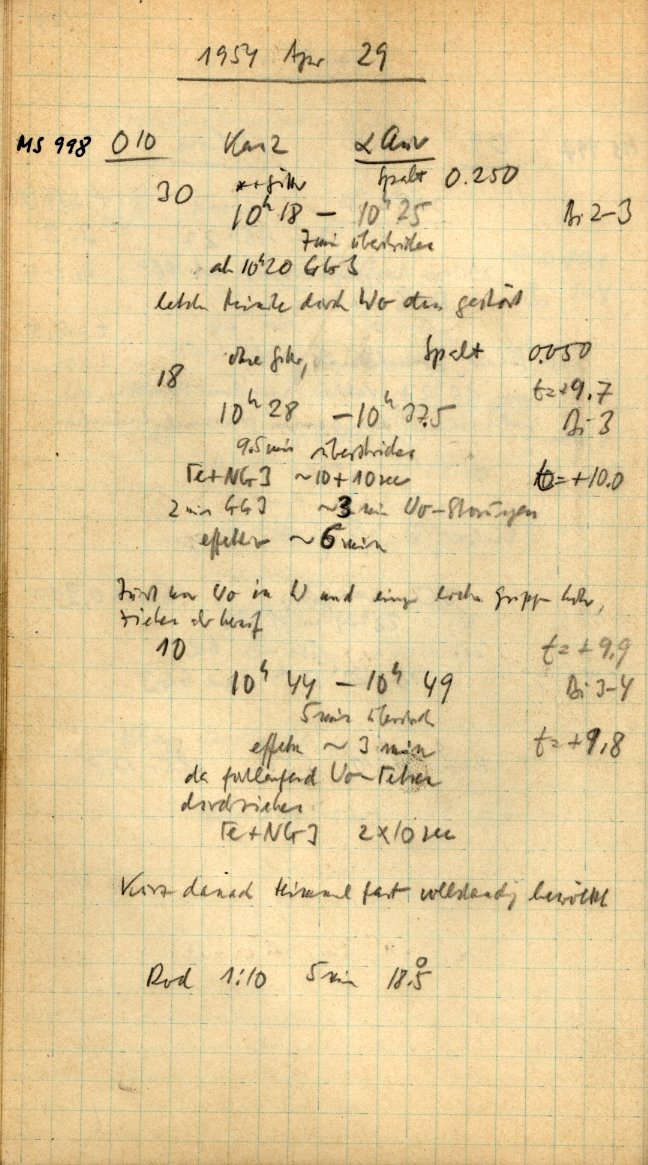 1954 Apr 29
MS 998 O 10 Kan 2 α Aur
30 Spalt 0.250
10ʰ 18 – 10ʰ 25 Bi 2-3
7 min überstrichen
ab 10ʰ20 GG 3
letzte Minute durch Wo gestört
ohne Gitter, Spalt 0.050
18 t=+9.7
10ʰ 28 – 10ʰ 37.5 Bi 3
9.5 min überstrichen
Fe+NG3 ~10+10 sec t=+10.0
2 min GG3 ~3 min Wo-Störungen
effektiv ~6 min
Wo in W und
10 t=+9.9
10ʰ 44 – 10ʰ 49 Bi 3-4
5 min überstrich
effektiv ~3 min t=+9.8
da Wo-Felder
durchziehen
Fe+NG3 2×10 sec
Kurz danach Himmel fast vollständig bewölkt
Rod 1:10 5 min 18.5°